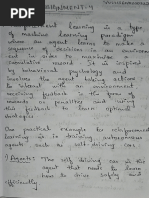 ASSIGNMENT-4
Reinforcement learning is a type
of machine learning paradigm
where an agent learns to make a
decisions in
cumulative reward. It is inspired
by behavioral psychology
involves the agent taking actions
to interact with an environment
receiving feedback in the form of
rewards or penalties and using
this feedback to learn optimal
strategies
One practical example to reinforcement
learning is in training autonomous
agents such as self-driving car
1) Agent: The self driving car is the
agent that needs to learn
how to drive safely and
efficiently